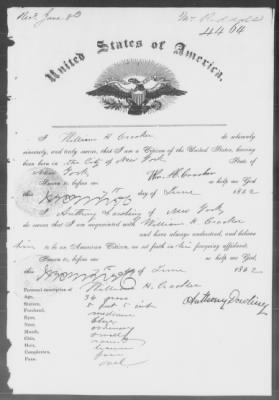 Rec'd June 9th
4464
United States of America.
I William H. Crocker do solemnly
sincerely, and truly swear, that I am a Citizen of the United States, having
been born in the City of New York State of
New York So help me God
Sworn to before me Wm. H. Crocker
this 7th day of June 1862
I Anthony Dowling of New York
do swear that I am acquainted with William H. Crocker
and have always understood, and believe
him to be an American Citizen, as set forth in his foregoing affidavit.
Sworn to before me So help me God
this 7th day of June 1862
Anthony Dowling
Personal description of William H. Crocker
Age, 34 years
Stature, 5 feet inch
Forehead, medium
Eyes, blue
Nose, ordinary
Mouth, small
Chin, round
Hair, brown
Complexion, fair
Face, oval